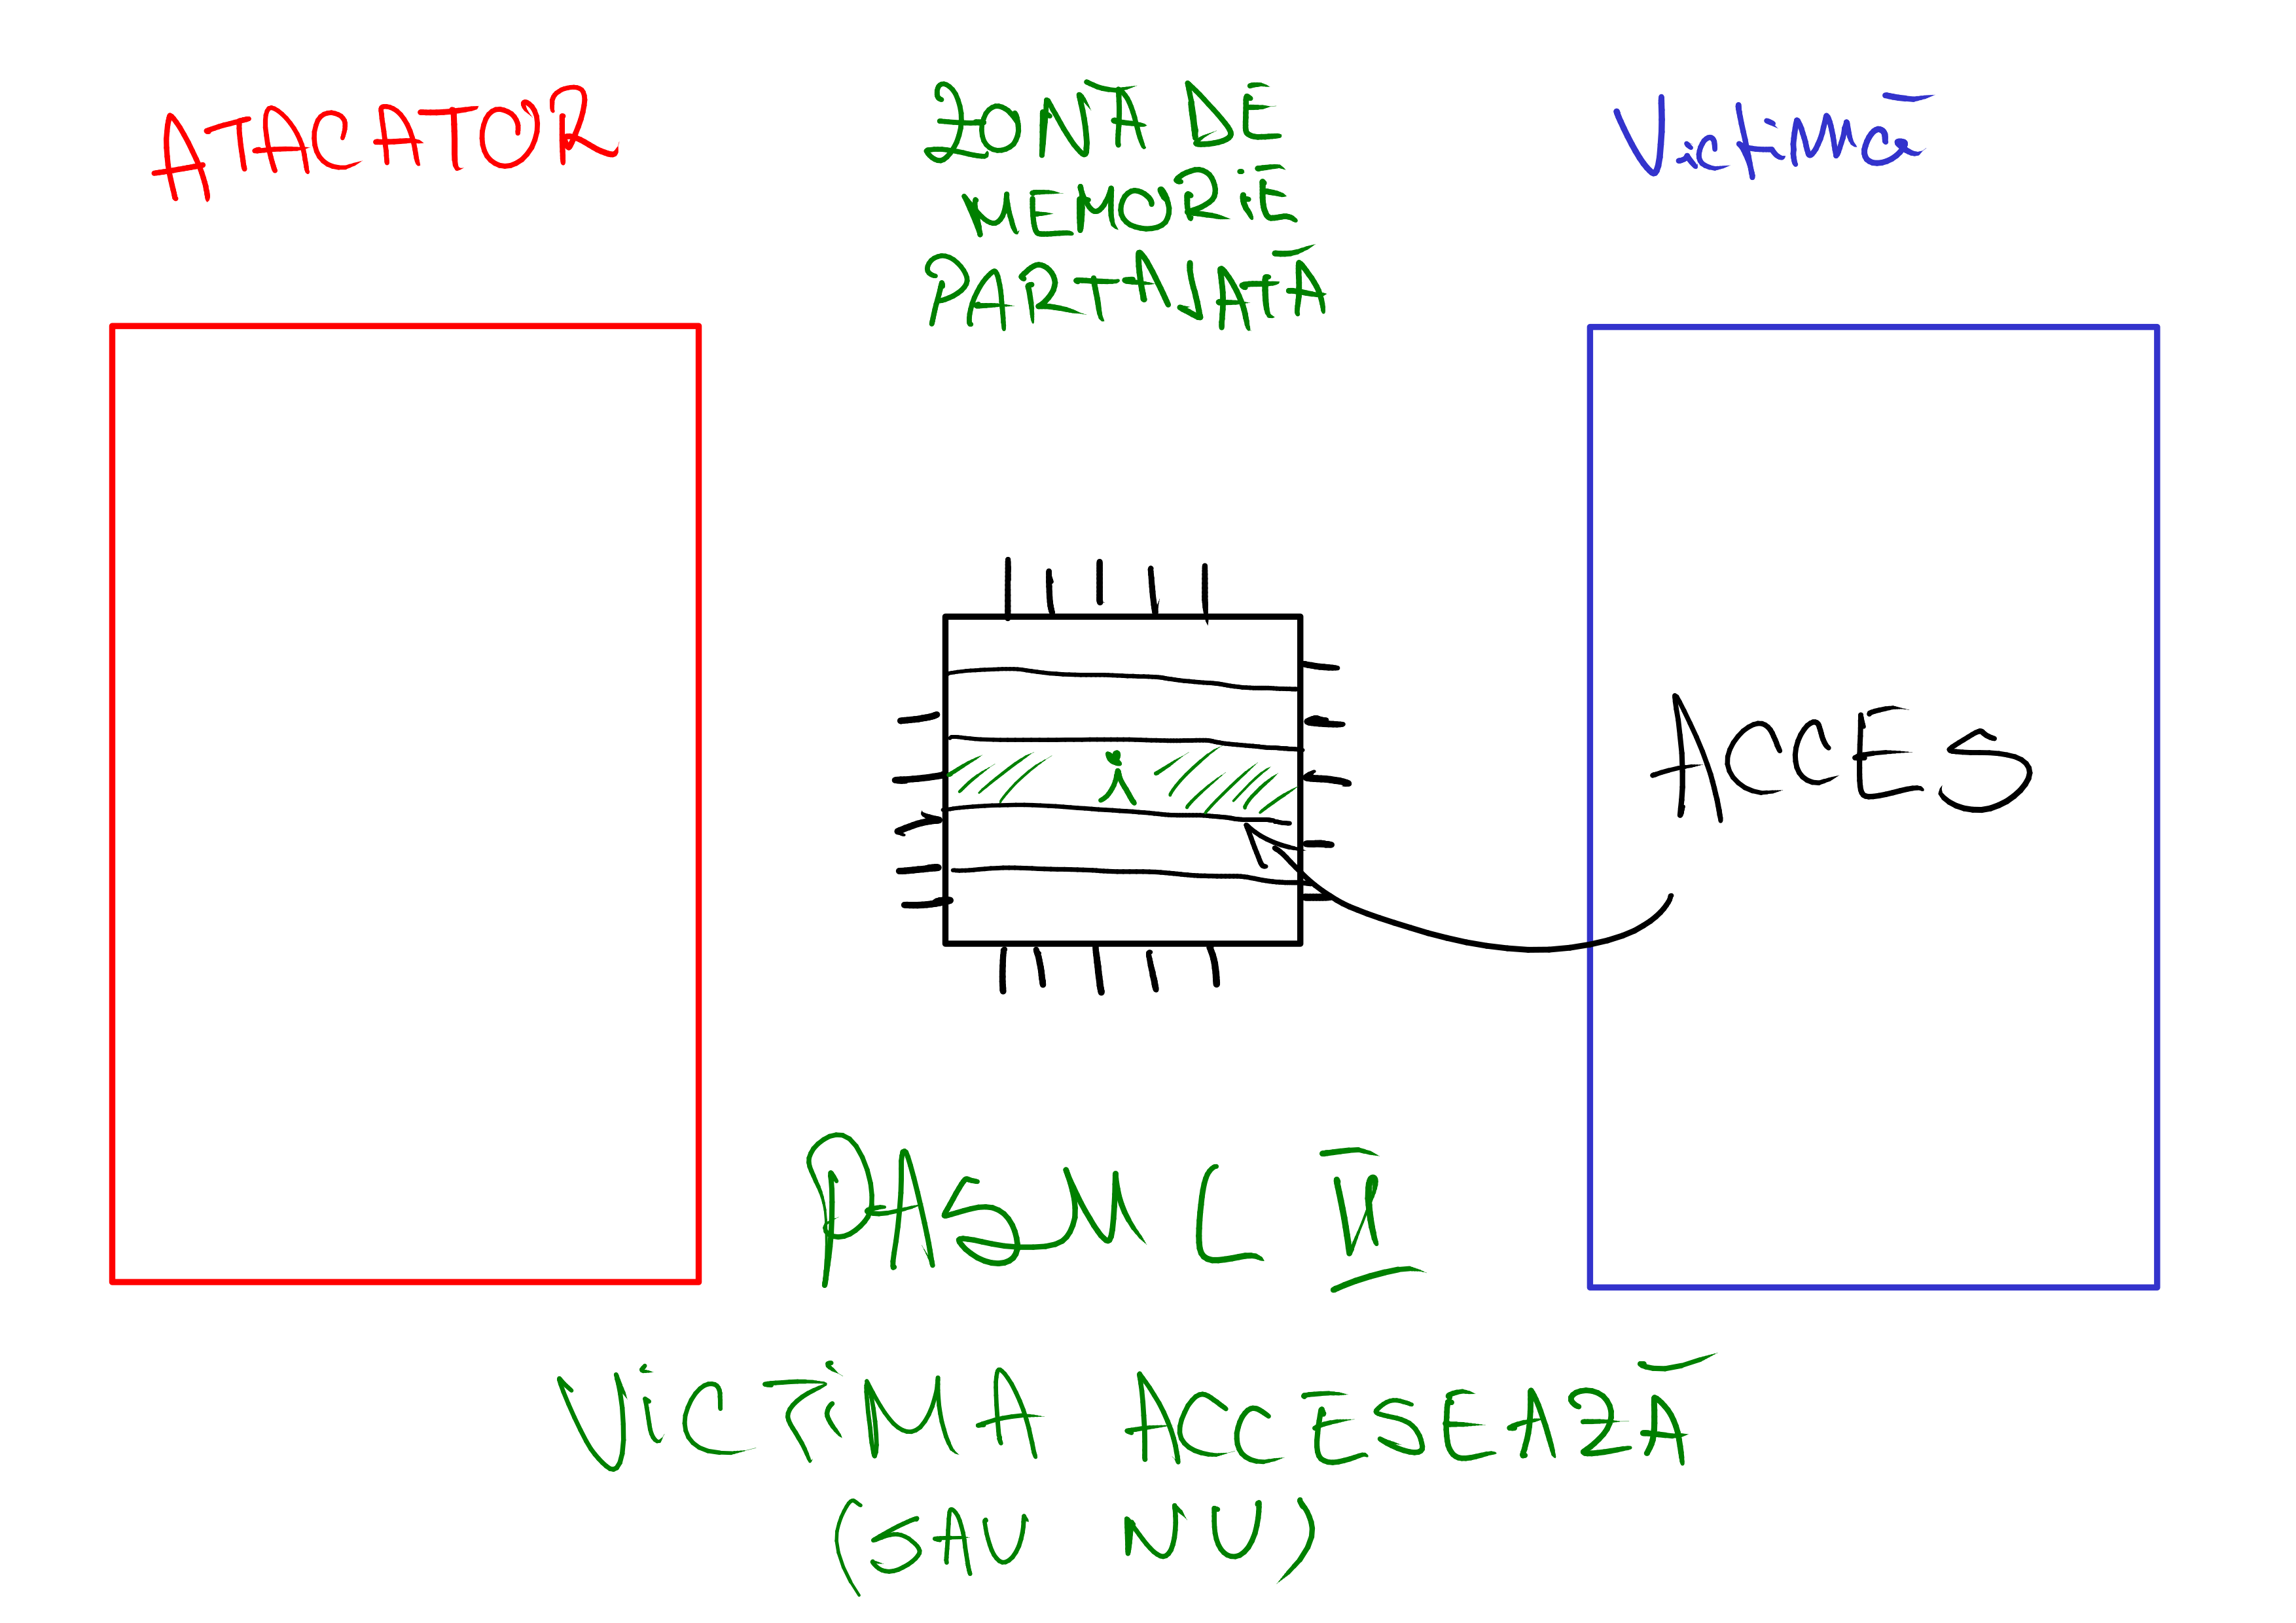 ATACATOR
ZONĂ DE
MEMORIE
PARTAJATĂ
Victimă
i
ACCES
PASUL II
VICTIMA ACCESEAZĂ
(SAU NU)